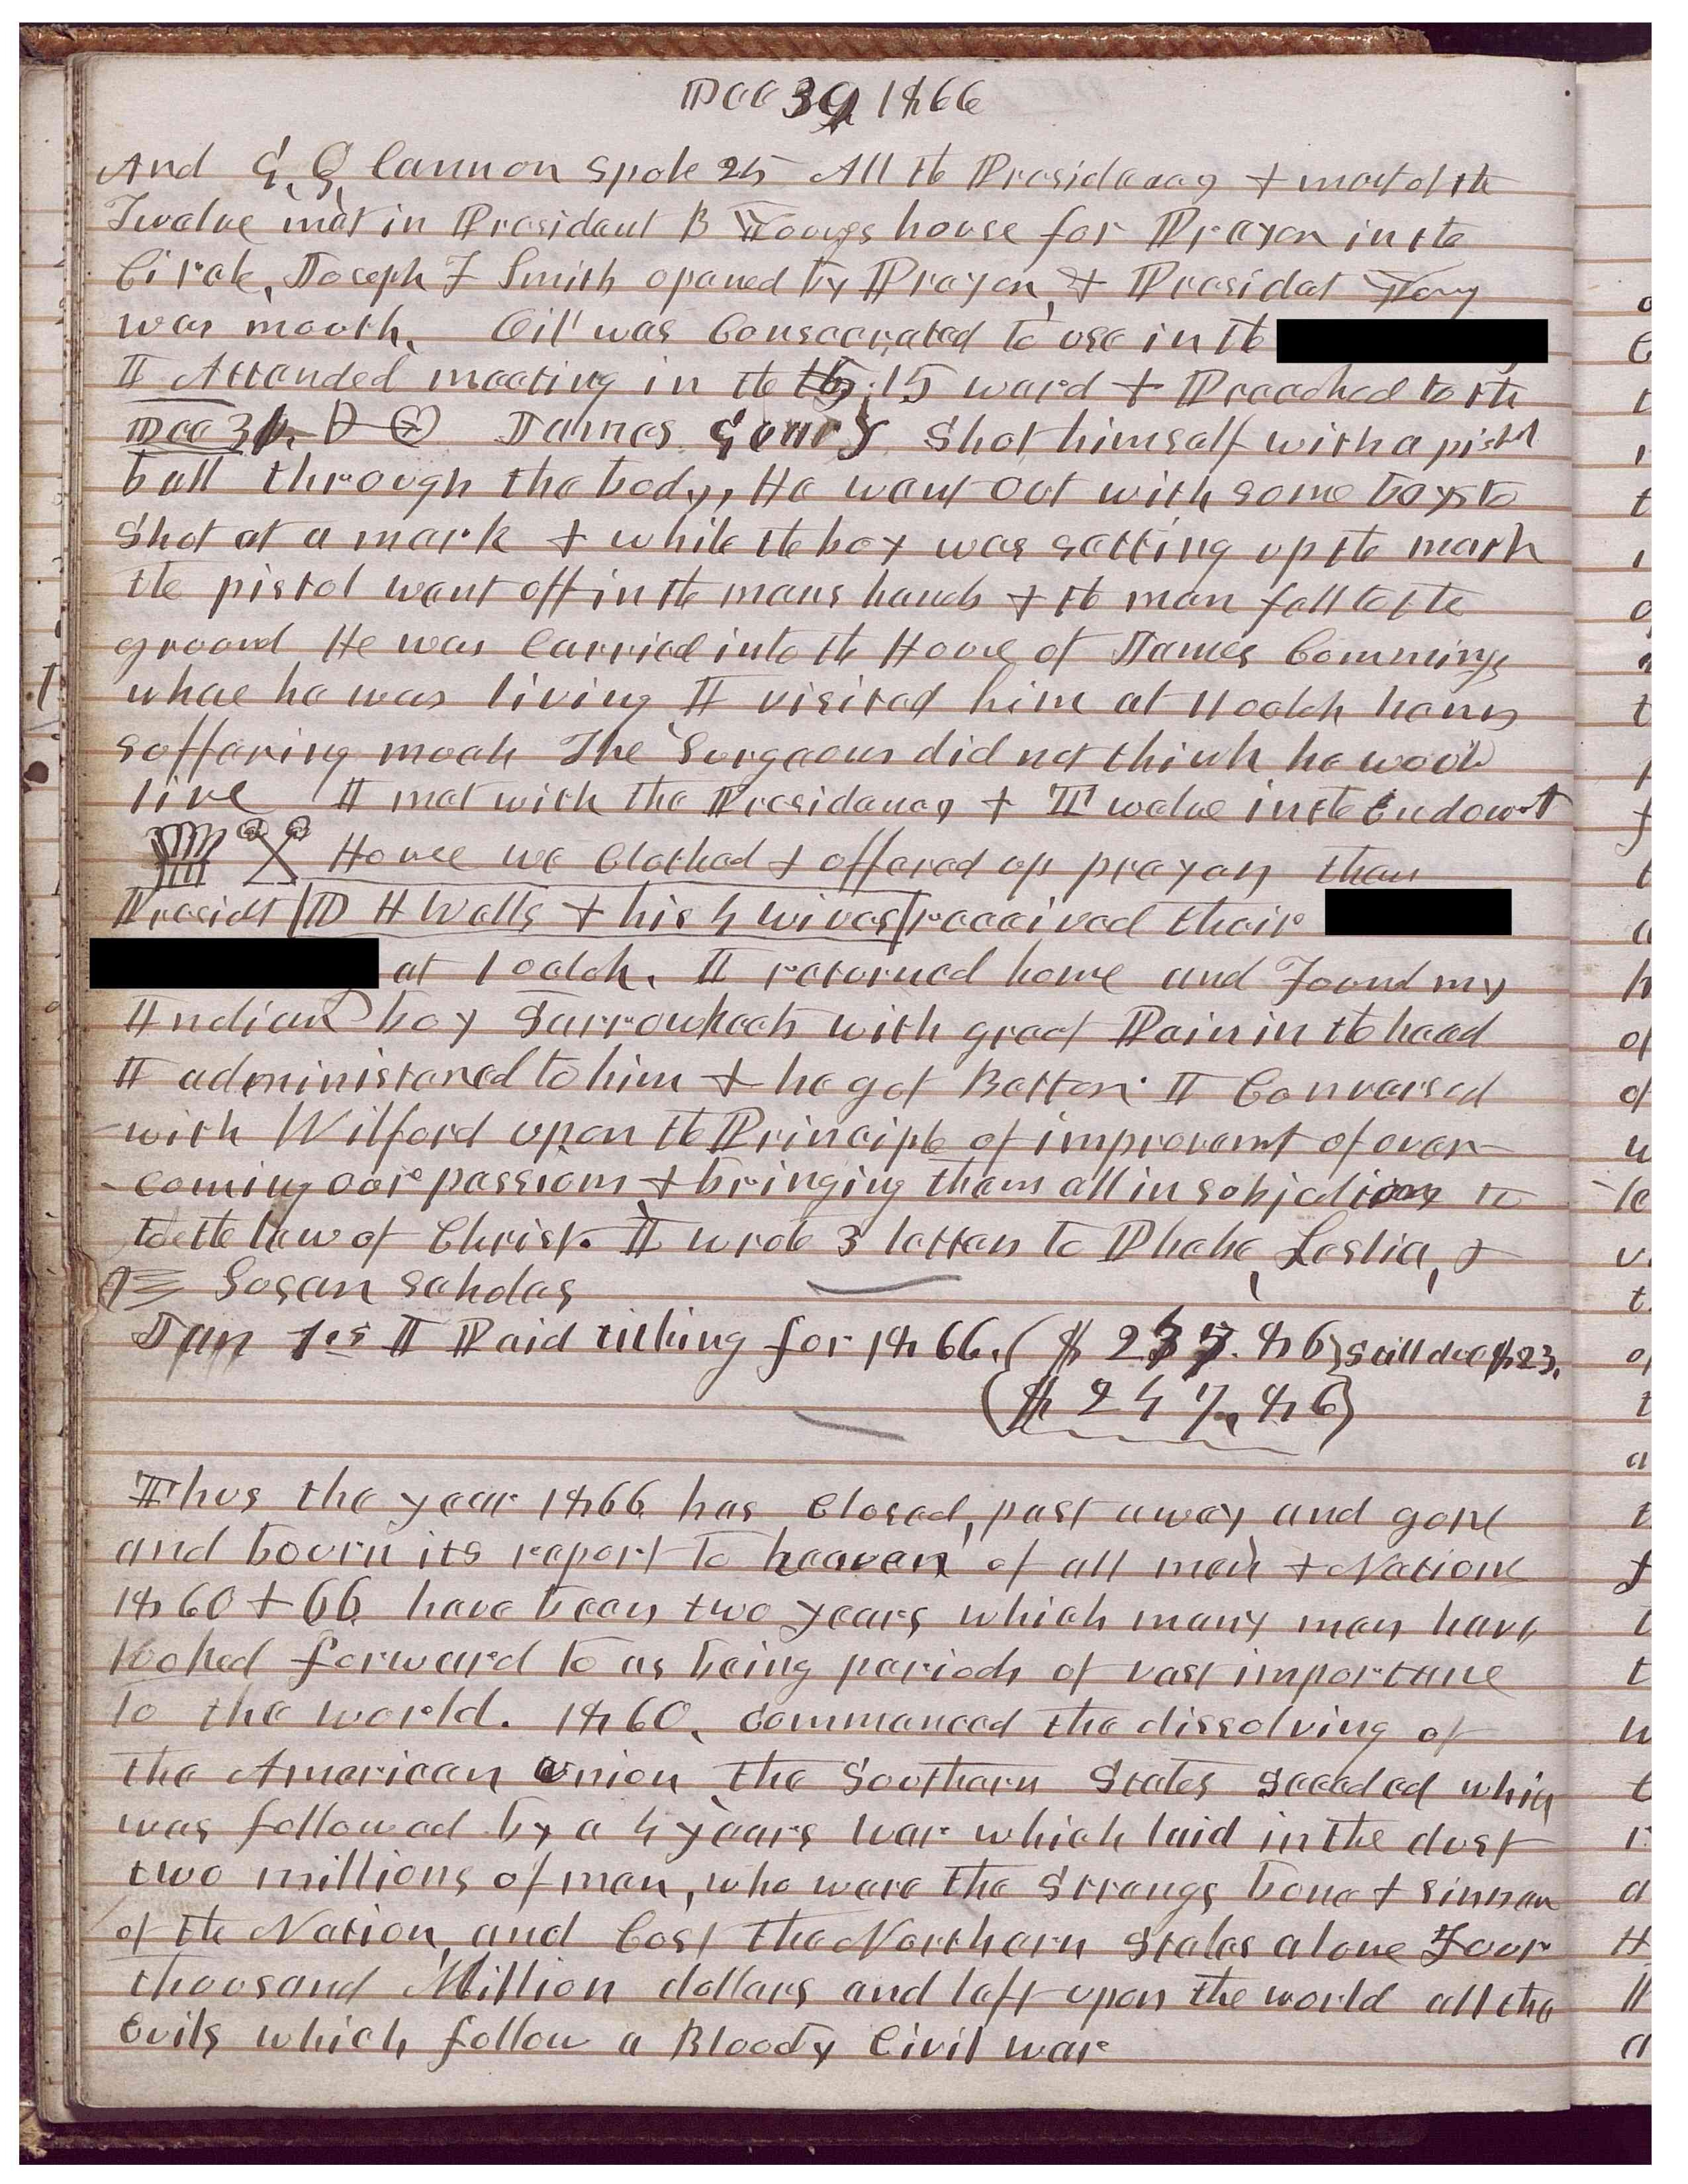 Dec 30, 1866
And G, Q, Cannon Spoke 25 All the Presidency & most of the
Twelve met in President B Youngs house for Prayer in the
Circle, Joseph F Smith opened by Prayer, & Presidet Young
was mouth. Oil was Consecrated to use in the
I Attended meeting in the 15 ward & Preached to the
Dec 31. James Shot himself with a pistol
ball through the body, He went out with some boys to
Shot at a mark & while the boy was setting up the mark
the pistol went off in the mans hands & the man fell to the
ground He was Carried into the House of James Cummings
whare he was living I visited him at 11 oclok
suffering much The Surgeons did not think he would
live I met with the Presidency & Twelve in the Endowmt
House we Clothed & offered up prayer then
Presidt D H Wells & his 4 wives received their
at 1 oclok. I returned home and Found my
Indian boy Sarrowkeets with great Pain in the head
I administered to him & he got Better I Conversed
with Wilford upon the Principle of improvemt of over-
-coming our passions & bringing them all in subjection to
to the law of Christ. I wrote 3 letters to Phebe, Leslie, &
Susan
Jan 1st I Paid tithing for 1866. ($ 237.86) still due $23.
($ 247.86)
Thus the year 1866 has Closed, past away and gone
and bourn its report to heaven of all men & Nations
1860 & 66 have been two years which many men have
looked forward to as being periods of vast importance
to the world. 1860. commenced the dissolving of
the American Union the Southern States seceded which
was followed by a 4 years war which laid in the dust
two millions of men, who were the Strength bone & sinnew
of the Nation, and Cost the Northern States alone Four
thousand Million dollars and left upon the world all the
Evils which follow a Bloody Civil war